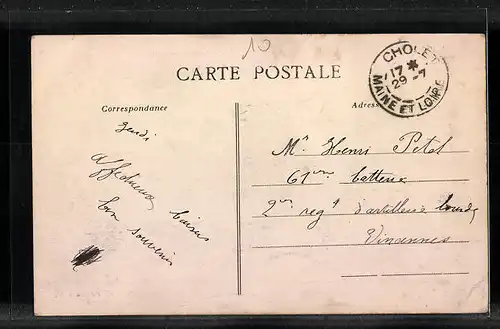 10
CARTE POSTALE
CHOLET
17 *
29 -7
MAINE ET LOIRE
Correspondance
Adresse
Jeudi
Affectueux
baisers
bon souvenir
Mr Henri Petel
61eme batterie
2me regt d'artillerie lourde
Vincennes